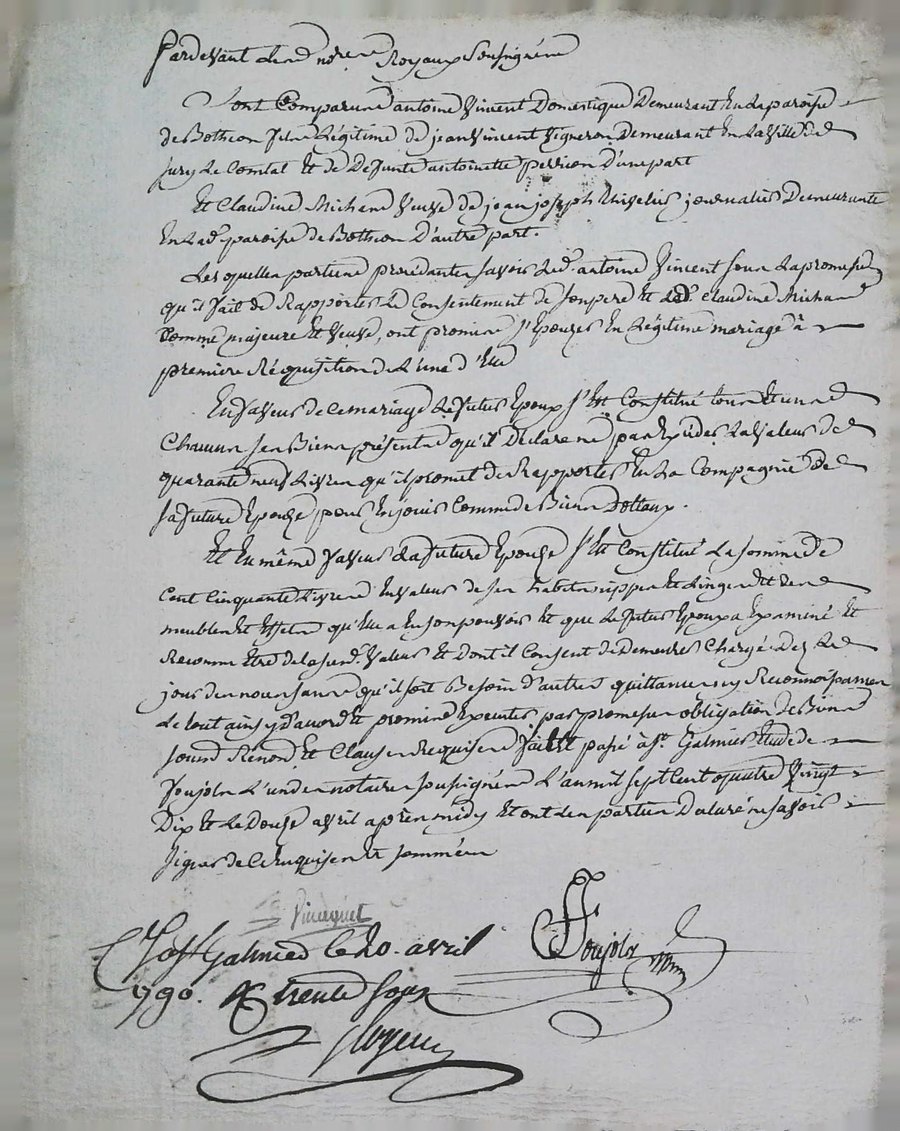 Pardevant les notres Royaux Soussignés
Sont Comparus antoine Vincent Domestique Demeurant En La paroisse
de Botheon fils Légitime de jean Vincent Vigneron Demeurant En La Ville de
sury Le Comtal Et de Defunte antoinette perrion D'une part
Et Claudine Michaud Veuve de jean joseph journalier Demeurante
En Lad. paroisse de Botheon D'autre part.
Lesquelles parties procédantes savoir Led. antoine Vincent sous La promesse
qu'il fait de Rapporter Le Consentement de son pere Et Lad. Claudine Michaud
Comme majeure Et Veuve, ont promis s'Epouser En Légitime mariage à
premiere Réquisition de L'une d'Elles
En faveur de ce mariage Le futur Epoux s'Est Constitué tous Et uns
Chacuns ses Biens présents qu'il Déclare ne pas Exceder La Valeur de
quarante neuf Livres qu'il promet de Rapporter En La Compagnie de
sa future Epouse pour En jouir Comme de Biens Dottaux.
Et En même faveur La future Epouse s'Est Constitué La somme de
Cent Cinquante Livres En Valeur de ses habits nippes Et Linges Et de ses
meubles Et Effets qu'Elle a En son pouvoir Et que Le futur Epoux a Examiné Et
Reconnu Être de La susd. Valeur Et Dont il Consent de Demeurer Chargé Dez Le
jour des noces sans qu'il soit Besoin d'autres quittances ny Reconnoissances
Le tout ainsy d'acord Et promis Executer par promesses obligation de Biens
soumd Renond Et Clauses Requises fait Et passé à St. Galmier Etude de
foujols L'un des notaires soussignés L'an mil sept Cent quatre Vingt
Dix Et Le Douse avril après midy Et ont Les parties Déclaré ne savoir
signer de Ce Enquises Et sommées
foujols
St Galmier le 20. avril
1790. R trente sous